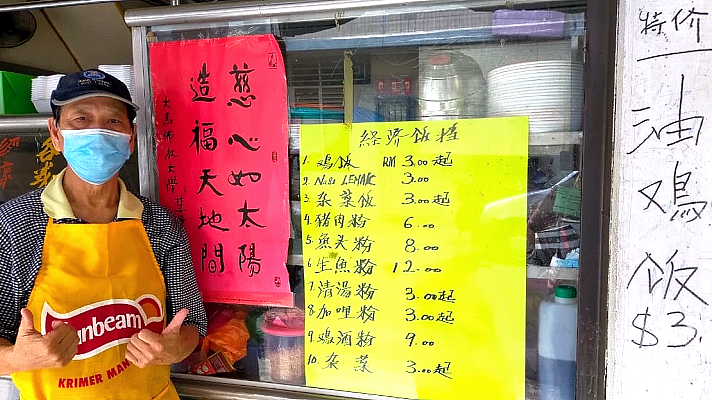 慈心如太陽
造福天地間
大馬佛教大學
经济饭档
1. 鸡饭 RM 3.00起
2. NASI LEMAK 3.00
3. 杂菜饭 3.00起
4. 猪肉粉 6.00
5. 魚头粉 8.00
6. 生魚粉 12.00
7. 清湯粉 3.00起
8. 加哩粉 3.00起
9. 鸡酒粉 9.00
10. 杂菜 3.00起
特价
油
鸡
饭
$3.
Sunbeam
KRIMER MAN